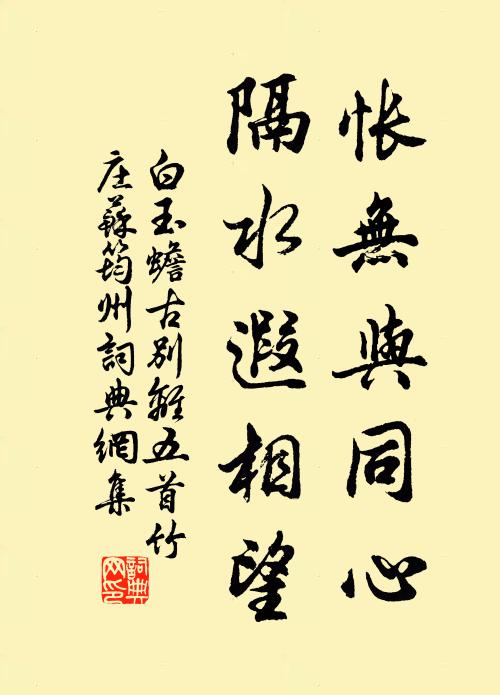 悵無與同心
隔水遐相望
白玉蟾古别離五首竹
庄蘇筠州詞典網集
詞典网印